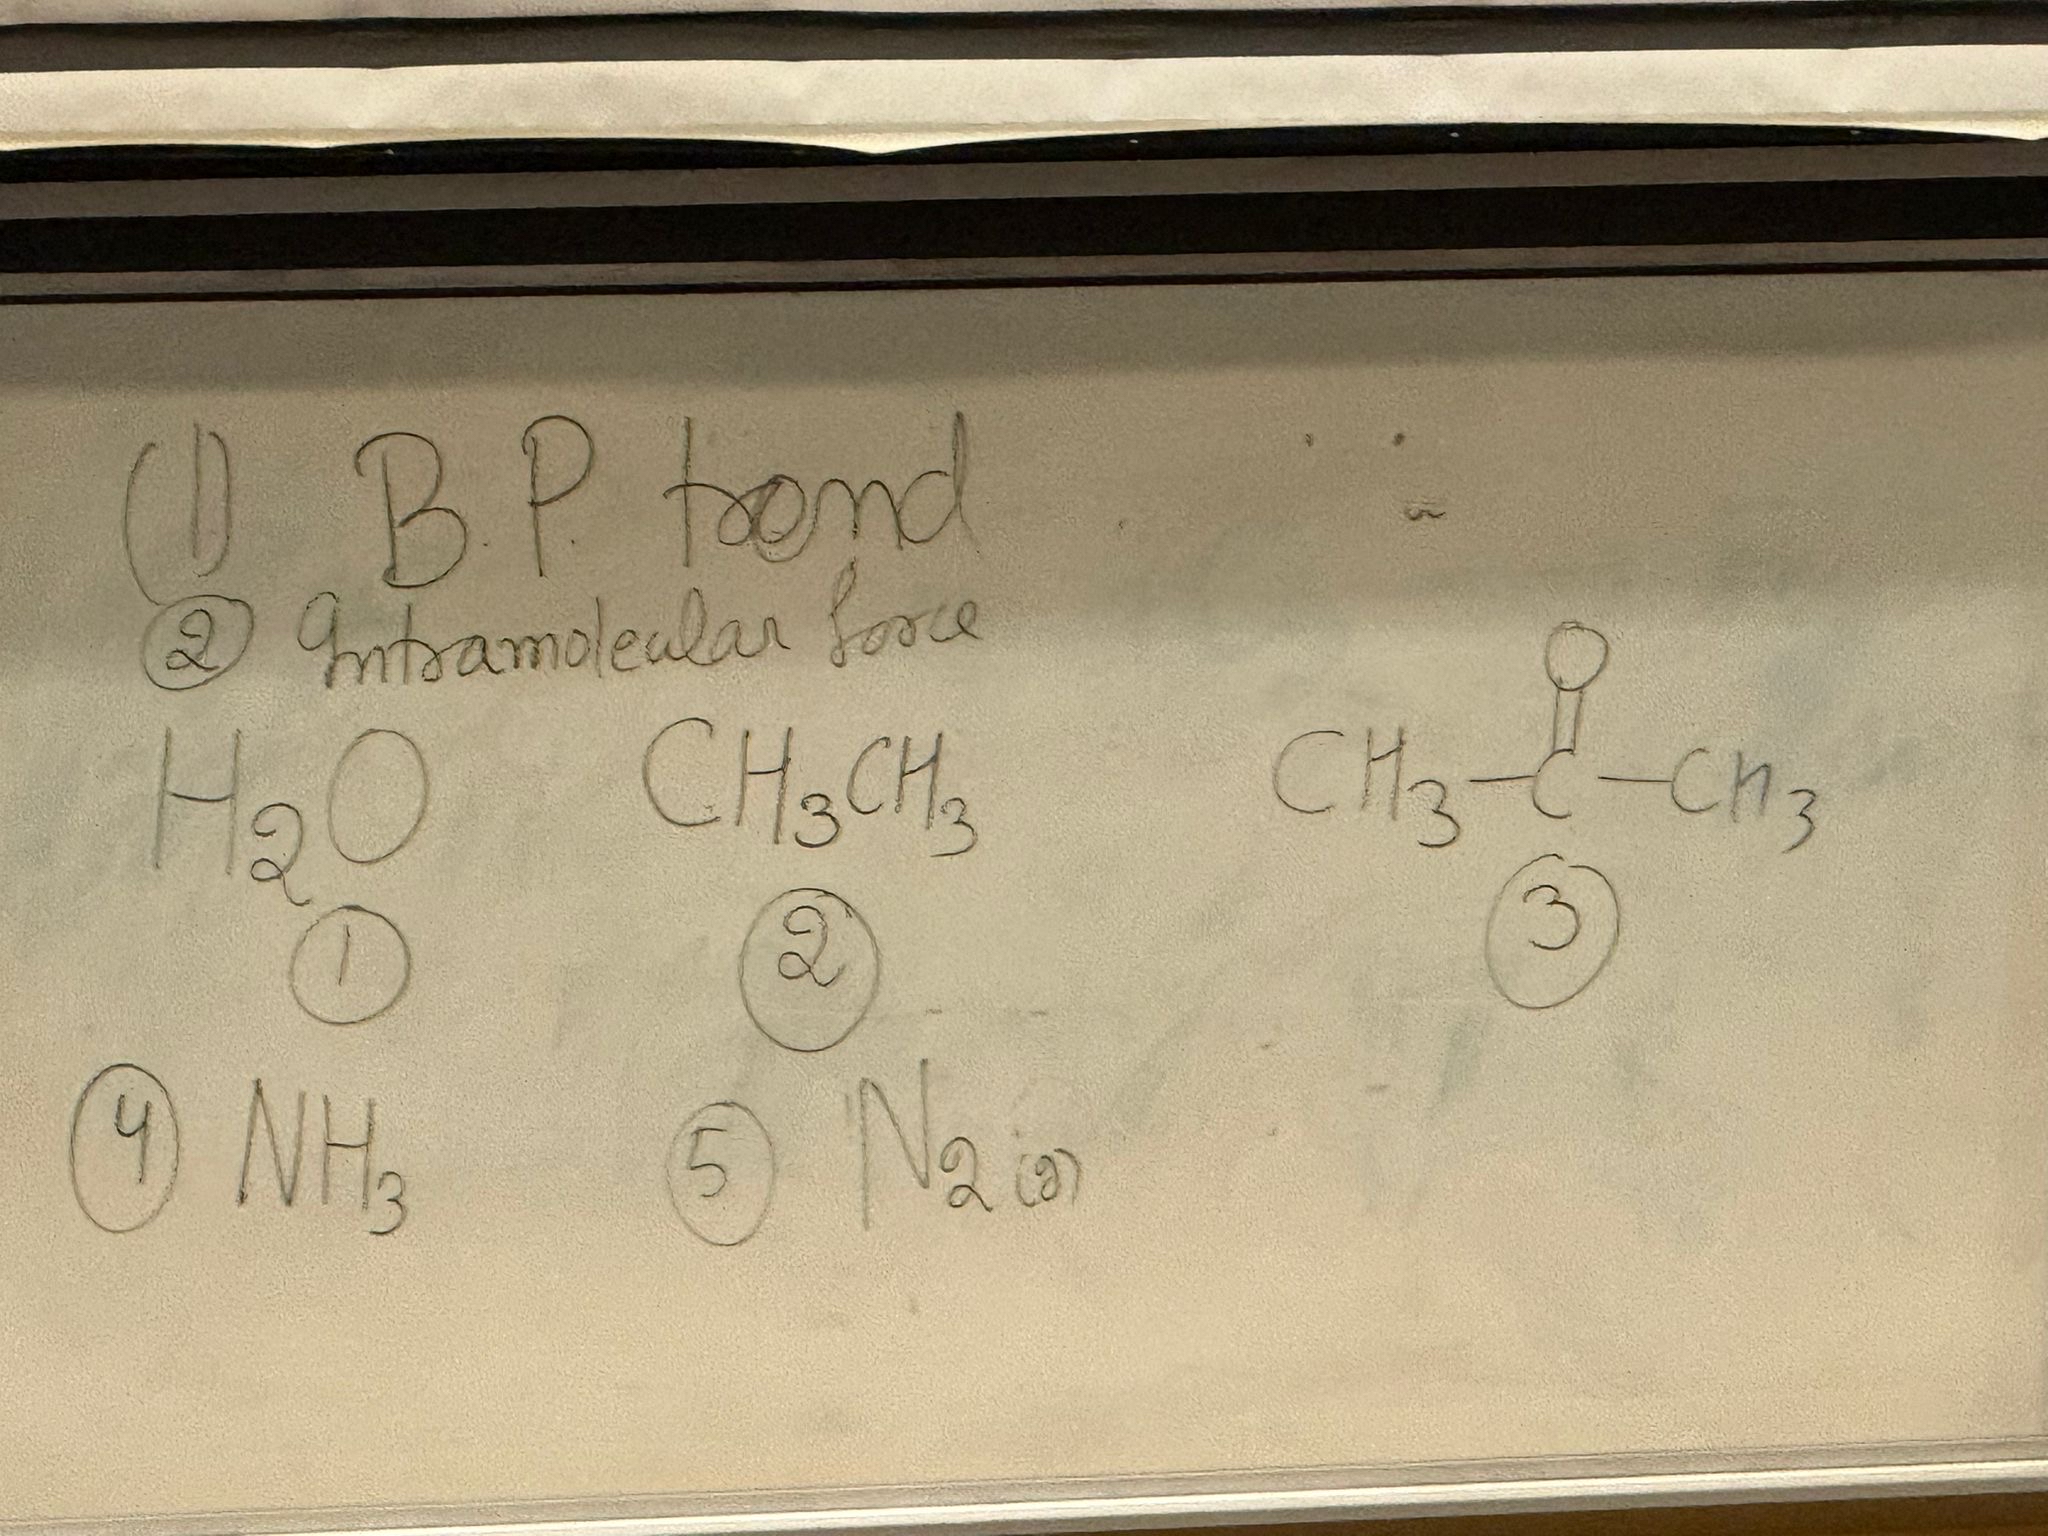 (1) B.P. trend
② Intramolecular force
H₂O CH₃CH₃ CH₃-C-CH₃
O
① ② ③
④ NH₃ ⑤ N₂ (g)